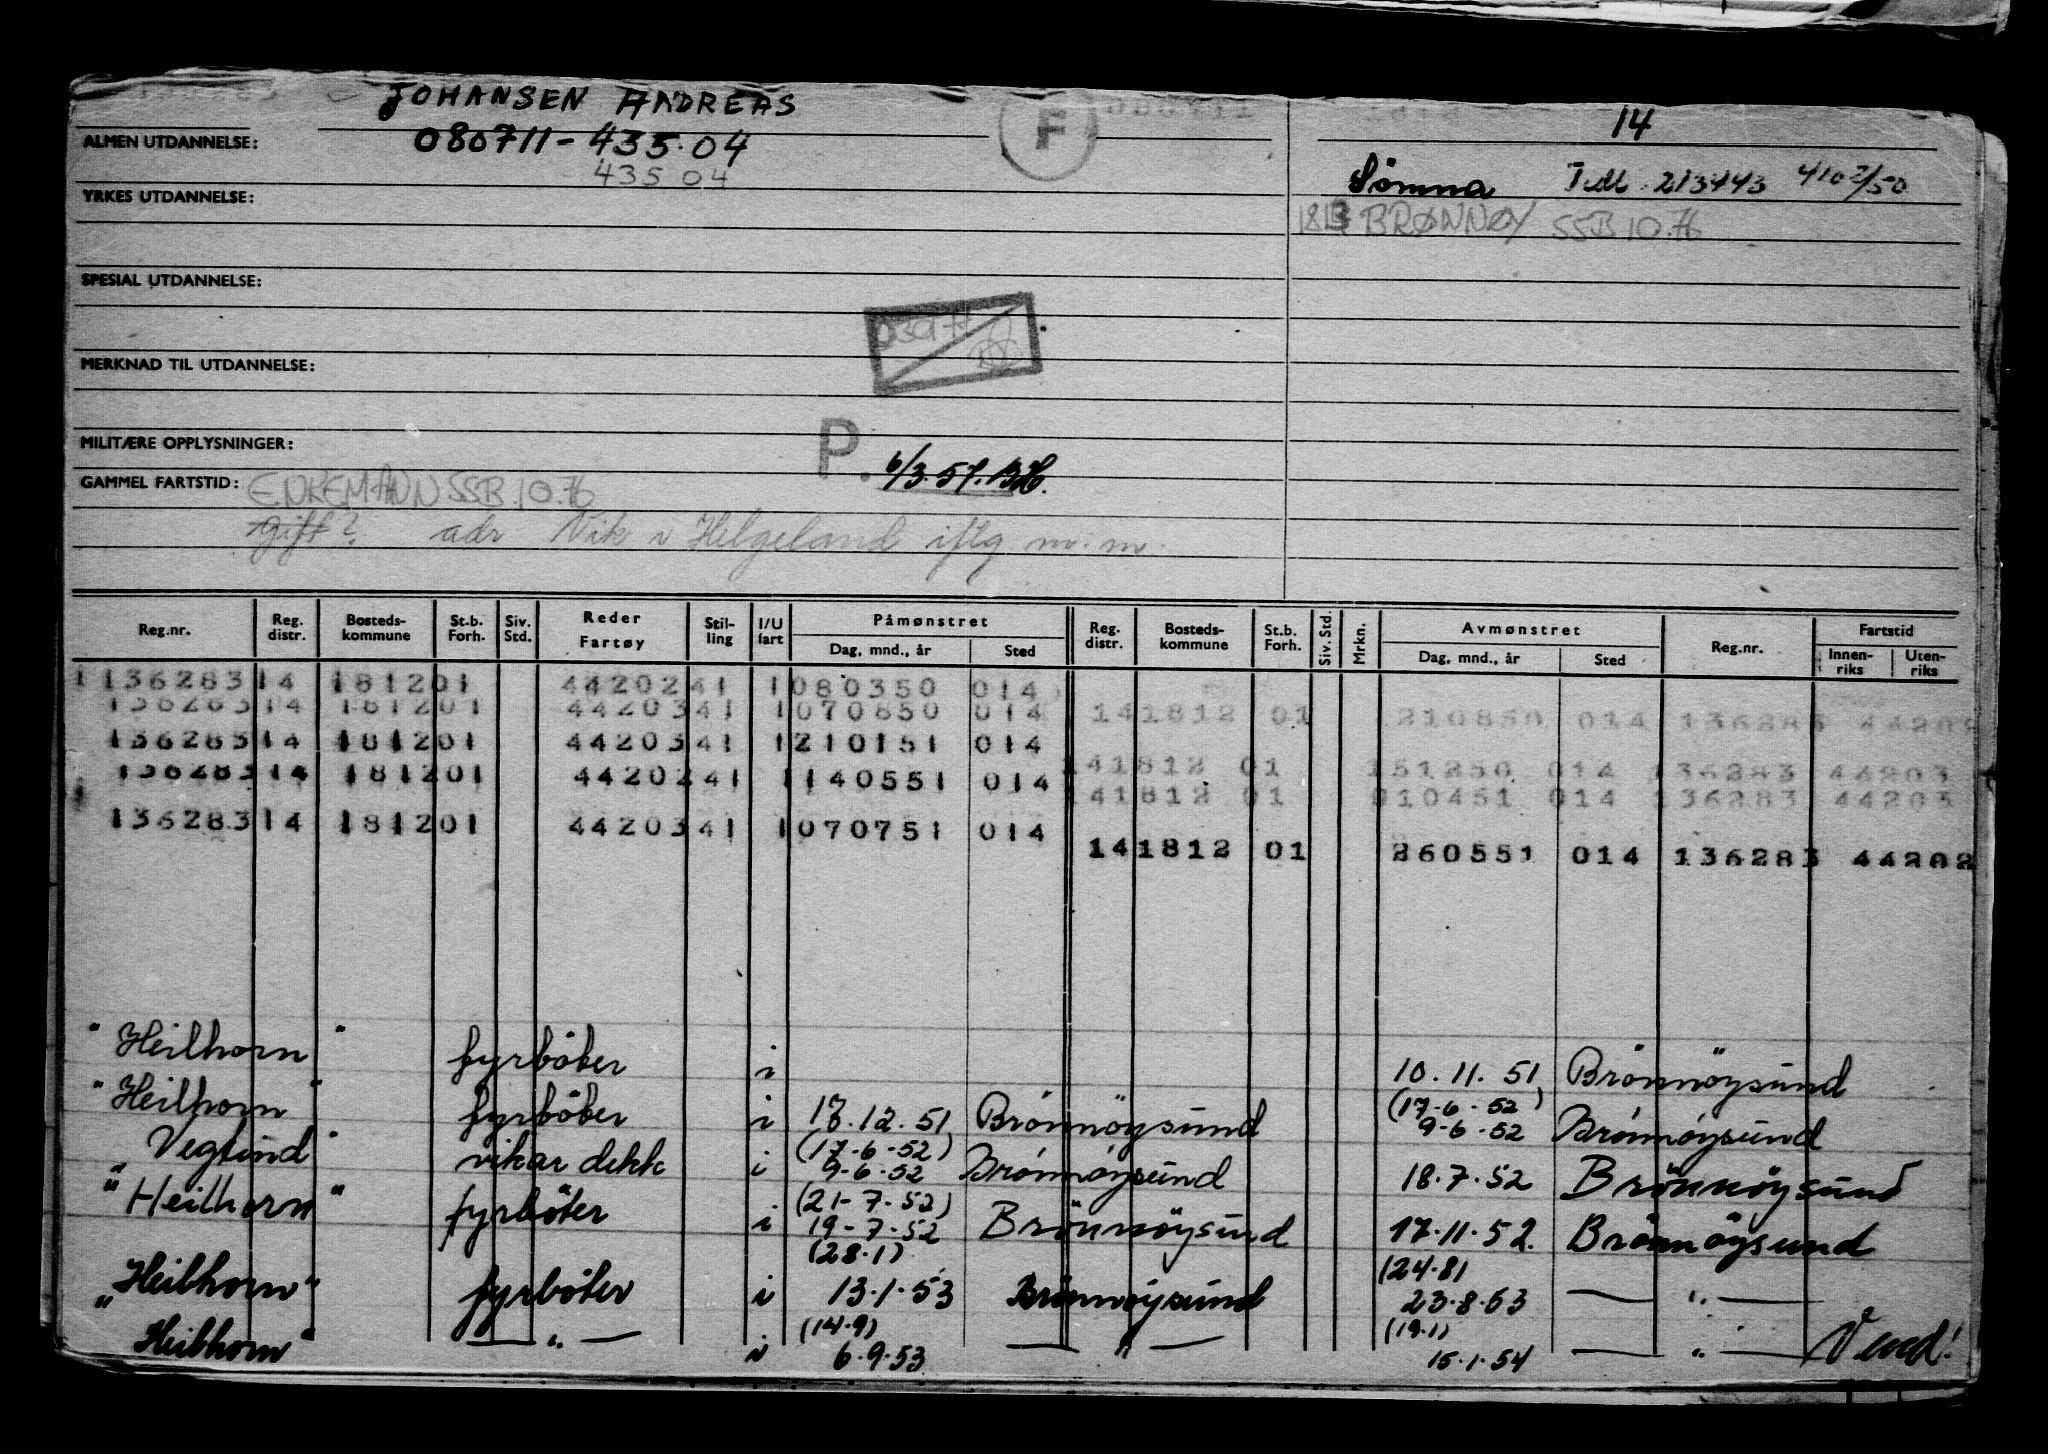 JOHANSEN ANDREAS
14
ALMEN UTDANNELSE:
080711-435.04
F
435 04
Sömna 213443 410 2/50
YRKES UTDANNELSE:
BRØNNØY SSB 10.76
SPESIAL UTDANNELSE:
MERKNAD TIL UTDANNELSE:
MILITÆRE OPPLYSNINGER:
P. 6/3.57.
GAMMEL FARTSTID: ENKEMANN SSB.10.76
Gift? adr Vik i Helgeland iflg m.m.
Reg.nr. Reg. distr. Bosteds-kommune St.b. Forh. Siv. Std. Reder Fartøy Stil-ling I/U fart Påmønstret Dag, mnd., år Sted Reg. distr. Bosteds-kommune St.b. Forh. Siv. Std. Mrkn. Avmønstret Dag, mnd., år Sted Reg.nr. Fartstid Innen-riks Uten-riks
1 136283 14 1812 01 44202 41 1 080350 014
136283 14 1812 01 44203 41 1 070850 014 14 1812 01 210850 014 136283 44202
136283 14 1812 01 44203 41 1 210151 014
14 1812 01 151250 014 136283 44203
136283 14 1812 01 44202 41 1 140551 014
14 1812 01 010451 014 136283 44203
136283 14 1812 01 44203 41 1 070751 014
14 1812 01 260551 014 136283 44202
"Heilhorn" fyrböter i 10.11.51 Brönnöysund
(17-6-52)
"Heilhorn" fyrböter i 17.12.51 Brönnöysund 9-6-52 Brönnöysund
(17-6-52)
"Vegtind" vikar dekk i 9-6-52 Brönnöysund 18.7.52 Brönnöysund
(21-7-52)
"Heilhorn" fyrböter i 19-7-52 Brönnöysund 17.11.52. Brönnöysund
(28.1) (24.8)
"Heilhorn" fyrböter i 13.1.53 Brönnöysund 23.8.53 — " —
(14.9) (19.1)
"Heilhorn" — " — i 6.9.53 — " — 15.1.54 — " — Vend!